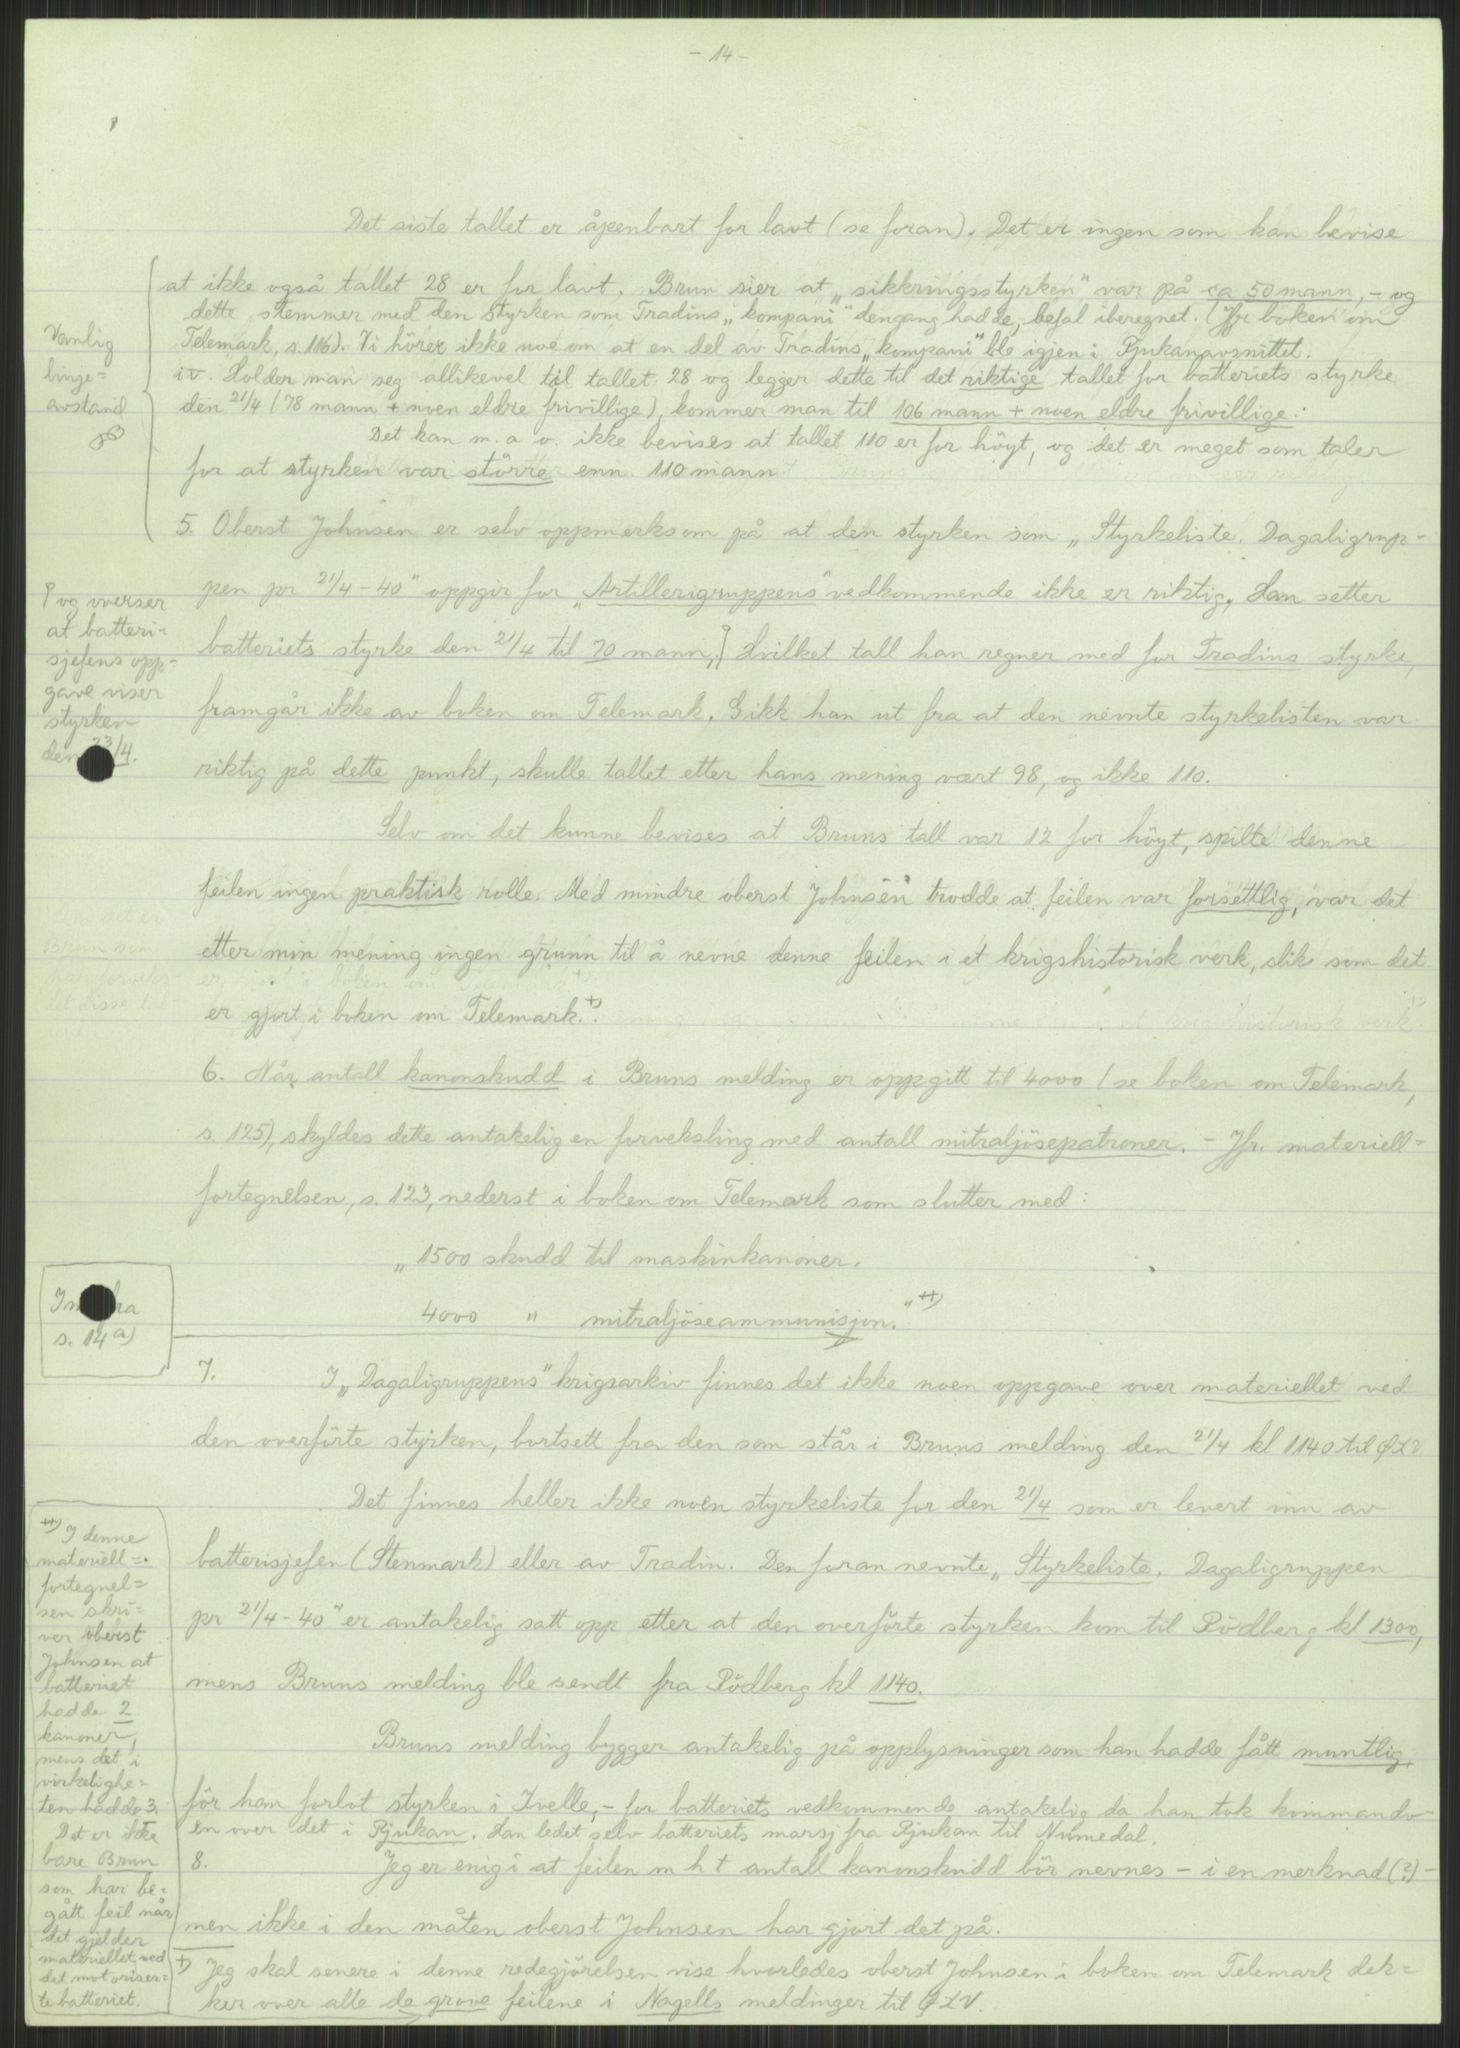 - 14 -
Det siste tallet er åpenbart for lavt (se foran). Det er ingen som kan bevise
at ikke også tallet 28 er for lavt. Brun sier at „sikkringsstyrken" var på ca 50 mann, - og
dette stemmer med den styrken som Tradins „kompani" dengang hadde, befal iberegnet. (Jfr boken om
Telemark, s. 116). Vi hörer ikke noe om at en del av Tradins „kompani" ble igjen i Rjukanavsnittet.
iv. Holder man seg allikevel til tallet 28 og legger dette til det riktige tallet for batteriets styrke
den 21/4 (78 mann + noen eldre frivillige), kommer man til 106 mann + noen eldre frivillige.
Det kan m. a. o. ikke bevises at tallet 110 er for höyt, og det er meget som taler
for at styrken var större enn 110 mann.
Vanlig
linje=
avstand
5. Oberst Johnsen er selv oppmerksom på at den styrken som „Styrkeliste. Dagaligrup-
pen pr 21/4-40" oppgir for „Artillerigruppens" vedkommende ikke er riktig. Han setter
batteriets styrke den 21/4 til 70 mann, Hvilket tall han regner med for Tradins styrke,
framgår ikke av boken om Telemark. Gikk han ut fra at den nevnte styrkelisten var
riktig på dette punkt, skulle tallet etter hans mening vært 98, og ikke 110.
og overser
at batteri=
sjefens opp-
gave viser
styrken
den 23/4.
Selv om det kunne bevises at Bruns tall var 12 for höyt, spilte denne
feilen ingen praktisk rolle. Med mindre oberst Johnsen trodde at feilen var forsettlig, var det
etter min mening ingen grunn til å nevne denne feilen i et krigshistorisk verk, slik som det
er gjort i boken om Telemark. +)
6. Når antall kanonskudd i Bruns melding er oppgitt til 4000 (se boken om Telemark,
s. 125), skyldes dette antakelig en forveksling med antall mitraljösepatroner. - Jfr. materiell=
fortegnelsen, s. 123, nederst i boken om Telemark som slutter med:
„1500 skudd til maskinkanoner.
4000 " mitraljöseammunisjon." ++)
s. 14 a)
7. I „Dagaligruppens" krigsarkiv finnes det ikke noen oppgave over materiellet ved
den overförte styrken, bortsett fra den som står i Bruns melding den 21/4 kl 1140 til ØLV.
Det finnes heller ikke noen styrkeliste for den 21/4 som er levert inn av
batterisjefen (Stenmark) eller av Tradin. Den foran nevnte „Styrkeliste. Dagaligruppen
pr 21/4-40" er antakelig satt opp etter at den overförte styrken kom til Rödberg kl 1300,
mens Bruns melding ble sendt fra Rödberg kl 1140.
Bruns melding bygger antakelig på opplysninger som han hadde fått muntlig,
för ham forlot styrken i Ivelle, - for batteriets vedkommende antakelig da han tok kommando-
en over det i Rjukan. Han ledet selv batteriets marsj fra Rjukan til Numedal.
8. Jeg er enig i at feilen m h t antall kanonskudd bör nevnes - i en merknad (?) -
men ikke i den måten oberst Johnsen har gjort det på.
+) Jeg skal senere i denne redegjörelsen vise hvorledes oberst Johnsen i boken om Telemark dek=
ker over alle de grove feilene i Nagells meldinger til ØLV.
++) I denne
materiell=
fortegnel=
sen skri=
ver oberst
Johnsen at
batteriet
hadde 2
kanoner,
mens det i
virkelighe=
ten hadde 3.
Det er ikke
bare Brun
som har be=
gått feil når
det gjelder
materiellet ved
det motoriser=
te batteriet.